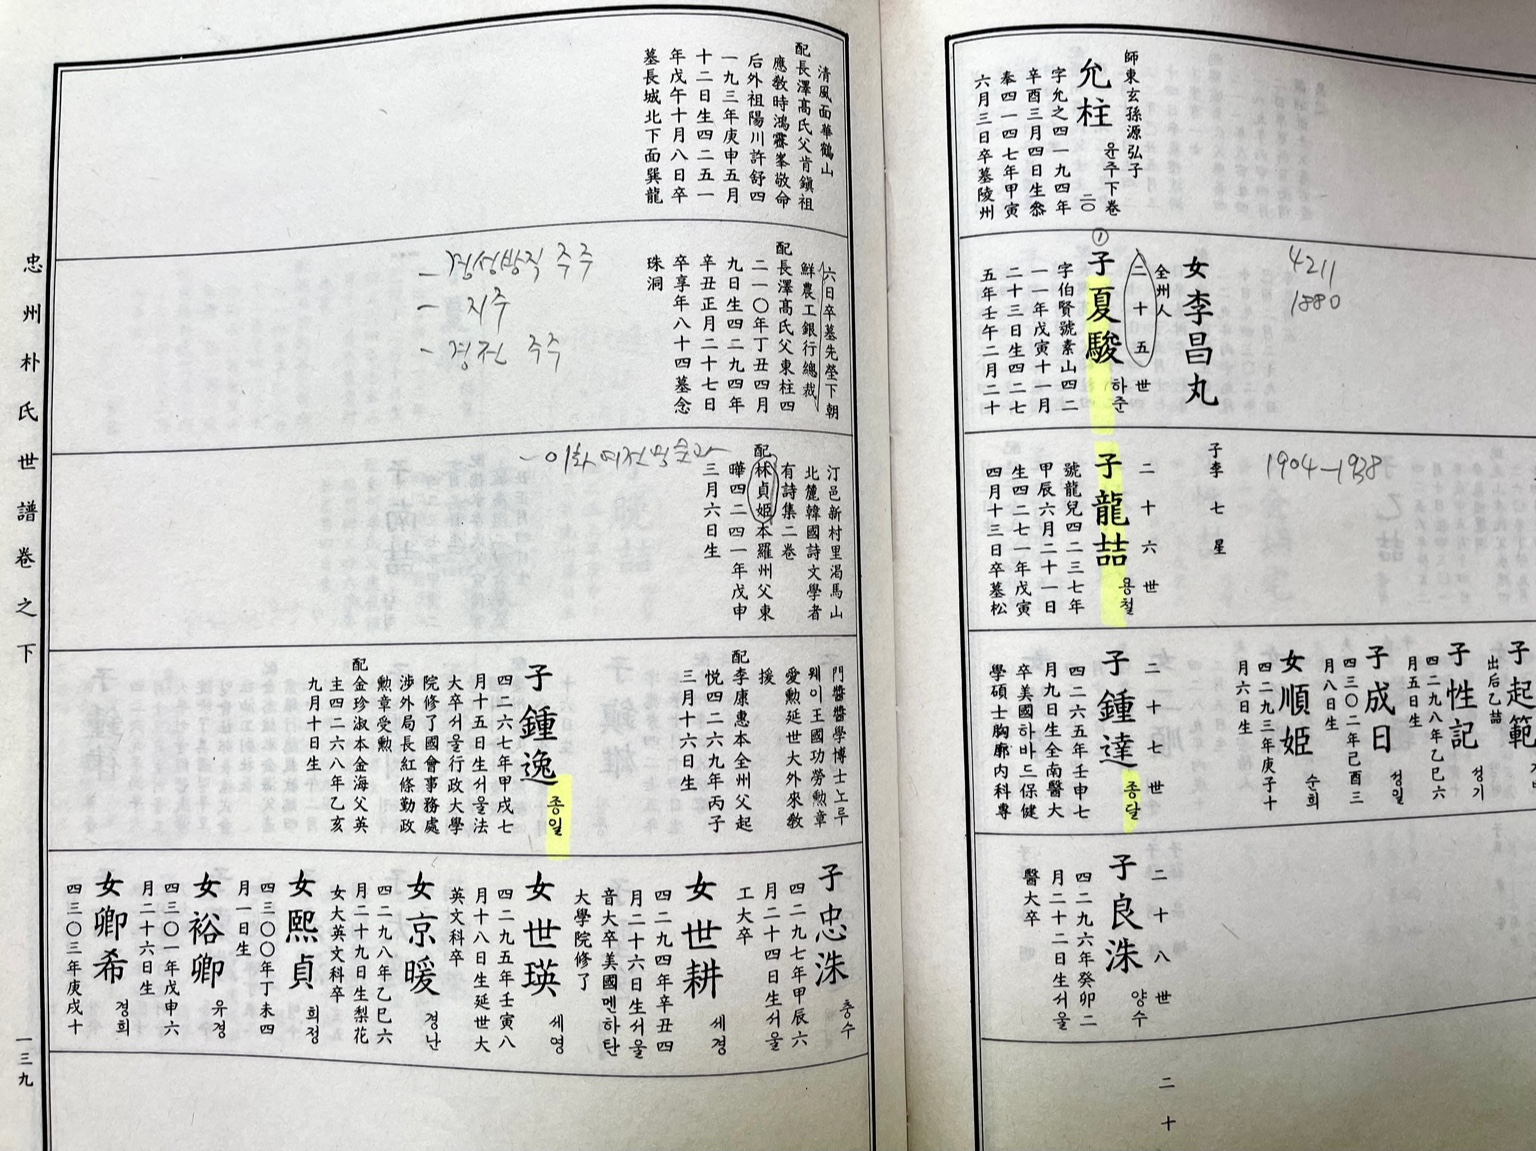 師東玄孫源弘子
允柱
윤주下巻
二〇
字允之四一九四年
辛酉三月四日生叅
奉四一四七年甲寅
六月三日卒墓陵州
清風面華鶴山
配長澤高氏父肯鎭祖
應敎時鴻霽峯敬命
后外祖陽川許舒四
一九三年庚申五月
十二日生四二五一
年戊午十月八日卒
墓長城北下面巽龍
4211
1880
女李昌丸
全州人
二十五世
①
子夏駿
하준
字伯賢號素山四二
一一年戊寅十一月
二十三日生四二七
五年壬午二月二十
六日卒墓先塋下朝
鮮農工銀行總裁
配長澤高氏父東柱四
二一〇年丁丑四月
九日生四二九四年
辛丑正月二十七日
卒享年八十四墓念
珠洞
- 경성방직 주주
- 지주
- 경전 주주
1904-1938
子李七星
二十六世
子龍喆
용철
號龍兒四二三七年
甲辰六月二十一日
生四二七一年戊寅
四月十三日卒墓松
汀邑新村里渴馬山
北麓韓國詩文學者
有詩集二巻
配林貞姬本羅州父東
曄四二四一年戊申
三月六日生
子起範
出后乙喆
子性記
성기
四二九八年乙巳六
月五日生
子成日
성일
四三〇二年己酉三
月八日生
女順姬
순희
四二九三年庚子十
月六日生
二十七世
子鍾達
종달
四二六五年壬申七
月九日生全南醫大
卒美國하바드保健
學碩士胸廓内科專
門醫醫學博士노루
웨이王國功勞勲章
愛勲延世大外來敎
援
配李康惠本全州父起
悦四二六九年丙子
三月十六日生
子鍾逸
종일
四二六七年甲戌七
月十五日生서울法
大卒서울行政大學
院修了國會事務處
渉外局長紅條勤政
勲章受勲
配金珍淑本金海父英
主四二六八年乙亥
九月十日生
二十八世
子良洙
양수
四二九六年癸卯二
月二十二日生서울
醫大卒
子忠洙
충수
四二九七年甲辰六
月二十四日生서울
工大卒
女世耕
세경
四二九四年辛丑四
月二十六日生서울
音大卒美國멘하탄
大學院修了
女世瑛
세영
四二九五年壬寅八
月十八日生延世大
英文科卒
女京暖
경난
四二九八年乙巳六
月二十九日生梨花
女大英文科卒
女熙貞
희정
四三〇〇年丁未四
月一日生
女裕卿
유경
四三〇一年戊申六
月二十六日生
女卿希
경희
四三〇三年庚戌十
二十
忠州朴氏世譜巻之下
一三九